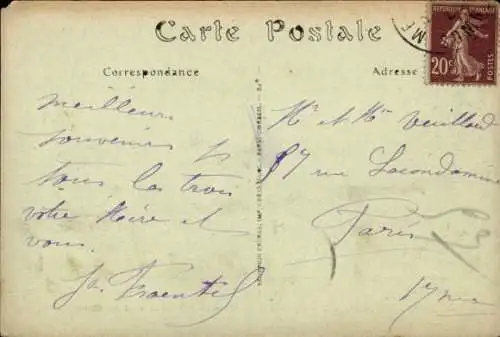 Carte Postale
Correspondance
Adresse
REPUBLIQUE FRANÇAISE
20c
POSTES
Meilleurs
souvenirs
tous les trois
votre Mère et
vous.
Mr et Mme Veuillard
87 rue Lacondamine
Paris
17me